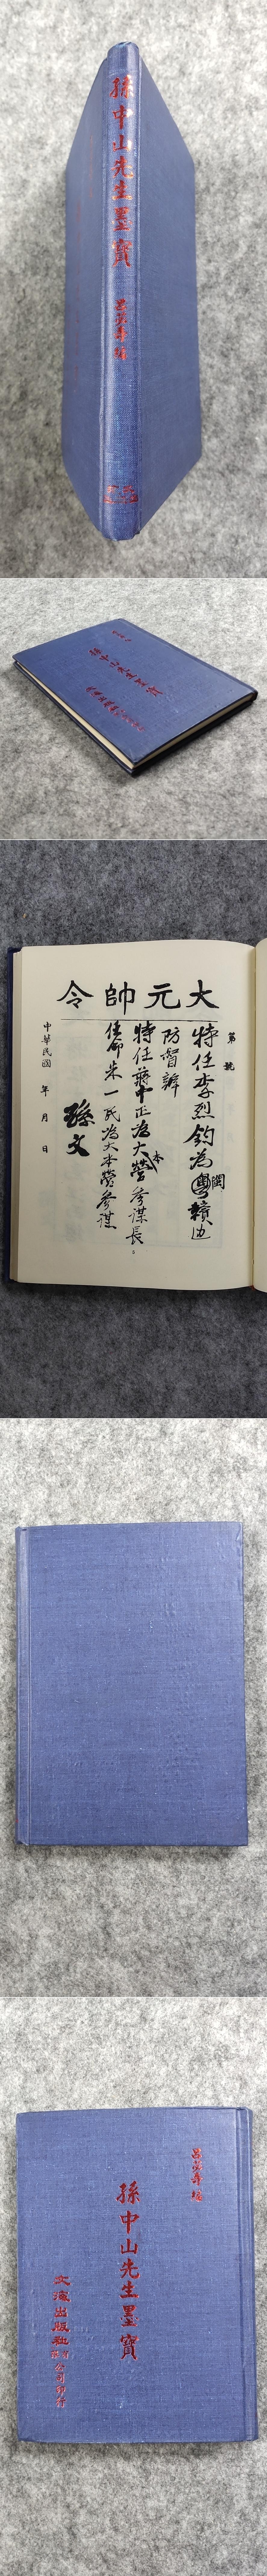 孫中山先生墨寶
孫中山先生墨寶
大元帥令
第 號
特任李烈鈞為閩贛邊
防督辦
特任蔣中正為大本營參謀長。
任命朱一民為大本營參謀
孫文
中華民國 年 月 日
編
孫中山先生墨寶
文海出版社